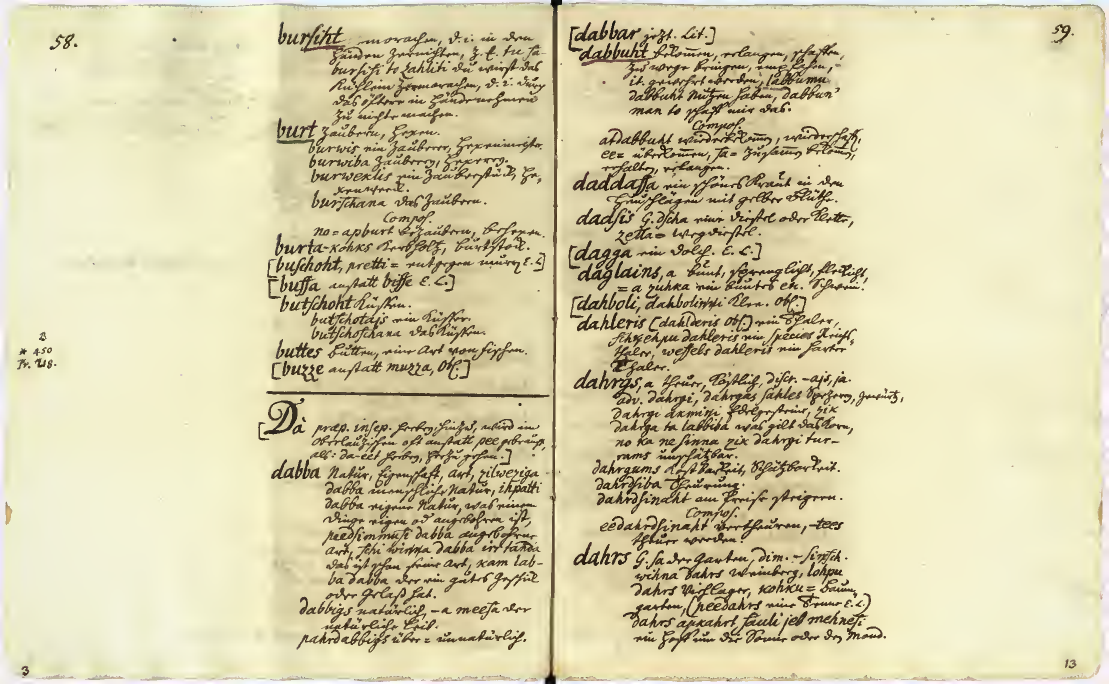 58.
bursiht morachen, d. i. in den
Händen zernichten, z. E. tu sa-
bursihi to zahliti du wirst das
Küchlein zermorachen, d. i. durch
das öftere in Händen nehmen
zu nichte machen.
burt zaubern, hexen.
burwis ein Zauberer, Hexenmeister.
burwiba Zauberey, Hexerey.
burweklis ein Zauberstück, He-
xenwerk.
burschana das Zaubern.
Compos.
no= apburt bezaubern, behexen.
burta-kohks Kerbholtz, burtstok.
[buschoht, pretti= entgegen E. L.]
[bussa anstatt bisse E. L.]
butschoht Küssen.
butschotais ein Küsser.
butschoschana das Küssen.
buttes butten, eine Art von Fischen.
[buzze anstatt muzza, Obl.]
2
* 450
Fr. 218.
[Dà præp. insep. herbey, hinzu, wird im
Oberlautzischen oft anstatt pee gebraucht,
als: da-eet herbey, herzu gehen.]
dabba Natur, Eigenschaft, Art, zilweziga
dabba menschliche Natur, ihpatti
dabba eigene Natur, was einem
Dinge eigen od angebohren ist,
peedsimmusi dabba angebohrne
Art, schi winna dabba irr tahda
das ist schon seine Art, kam lab-
ba dabba der ein gutes Geschick
oder Gelaß hat.
dabbigs natürlich, -a meesa der
natürliche Leib.
pahrdabbigs über= unnatürlich.
3
59.
[dabbar jezt. Lit.]
dabbuht bekommen, erlangen, schaffen,
zu wege bringen,
it. gewehret werden, labbumu
dabbuht Nutzen haben, dabbun
man to schaff mir das.
Compos.
atdabbuht wiederbekommen, wiederschaffen,
ee= überkommen, sa= zusammen bekommen,
erhalten, erlangen.
daddassa ein schönes Kraut in den
Heuschlägen mit gelber Blüthe.
dadsis G. dscha eine Diestel oder Klette,
zetta= wegdiestel.
[dagga ein Dolch. E. L.]
daglains, a bunt, sprenglicht, flekicht,
-a zuhka ein buntes Schwein.
[dahboli, dahbolinni Klee. Obl.]
dahleris [dahlderis Obl.] ein Thaler,
schkehpu dahleris ein species Reichs-
thaler, wessels dahleris ein harter
Thaler.
dahrgs, a theuer, köstlich, discr. -ajs, ja.
adv. dahrgi, dahrgas sahles Spezerey, gewürtz,
dahrgi akmini Edelgesteine, zik
dahrga ta labbiba was gilt das Korn,
no ka ne sinna zik dahrgi tur-
rams unschätzbar.
dahrgums Kostbarkeit, Schätzbarkeit.
dahrdsiba Theurung.
dahrdsinaht am Preise steigern.
Compos.
eedahrdsinaht vertheuren, -tees
theuer werden.
dahrs G. sa der Garten, dim. -sinsch.
wihna dahrs Weinberg, lohpu
dahrs Viehlager, kohku= Baum
garten, (peedahrs eine Tenne E. L.)
dahrs apkahrt sauli jeb mehnesi
ein Hoff um die Sonne oder den Mond.
13